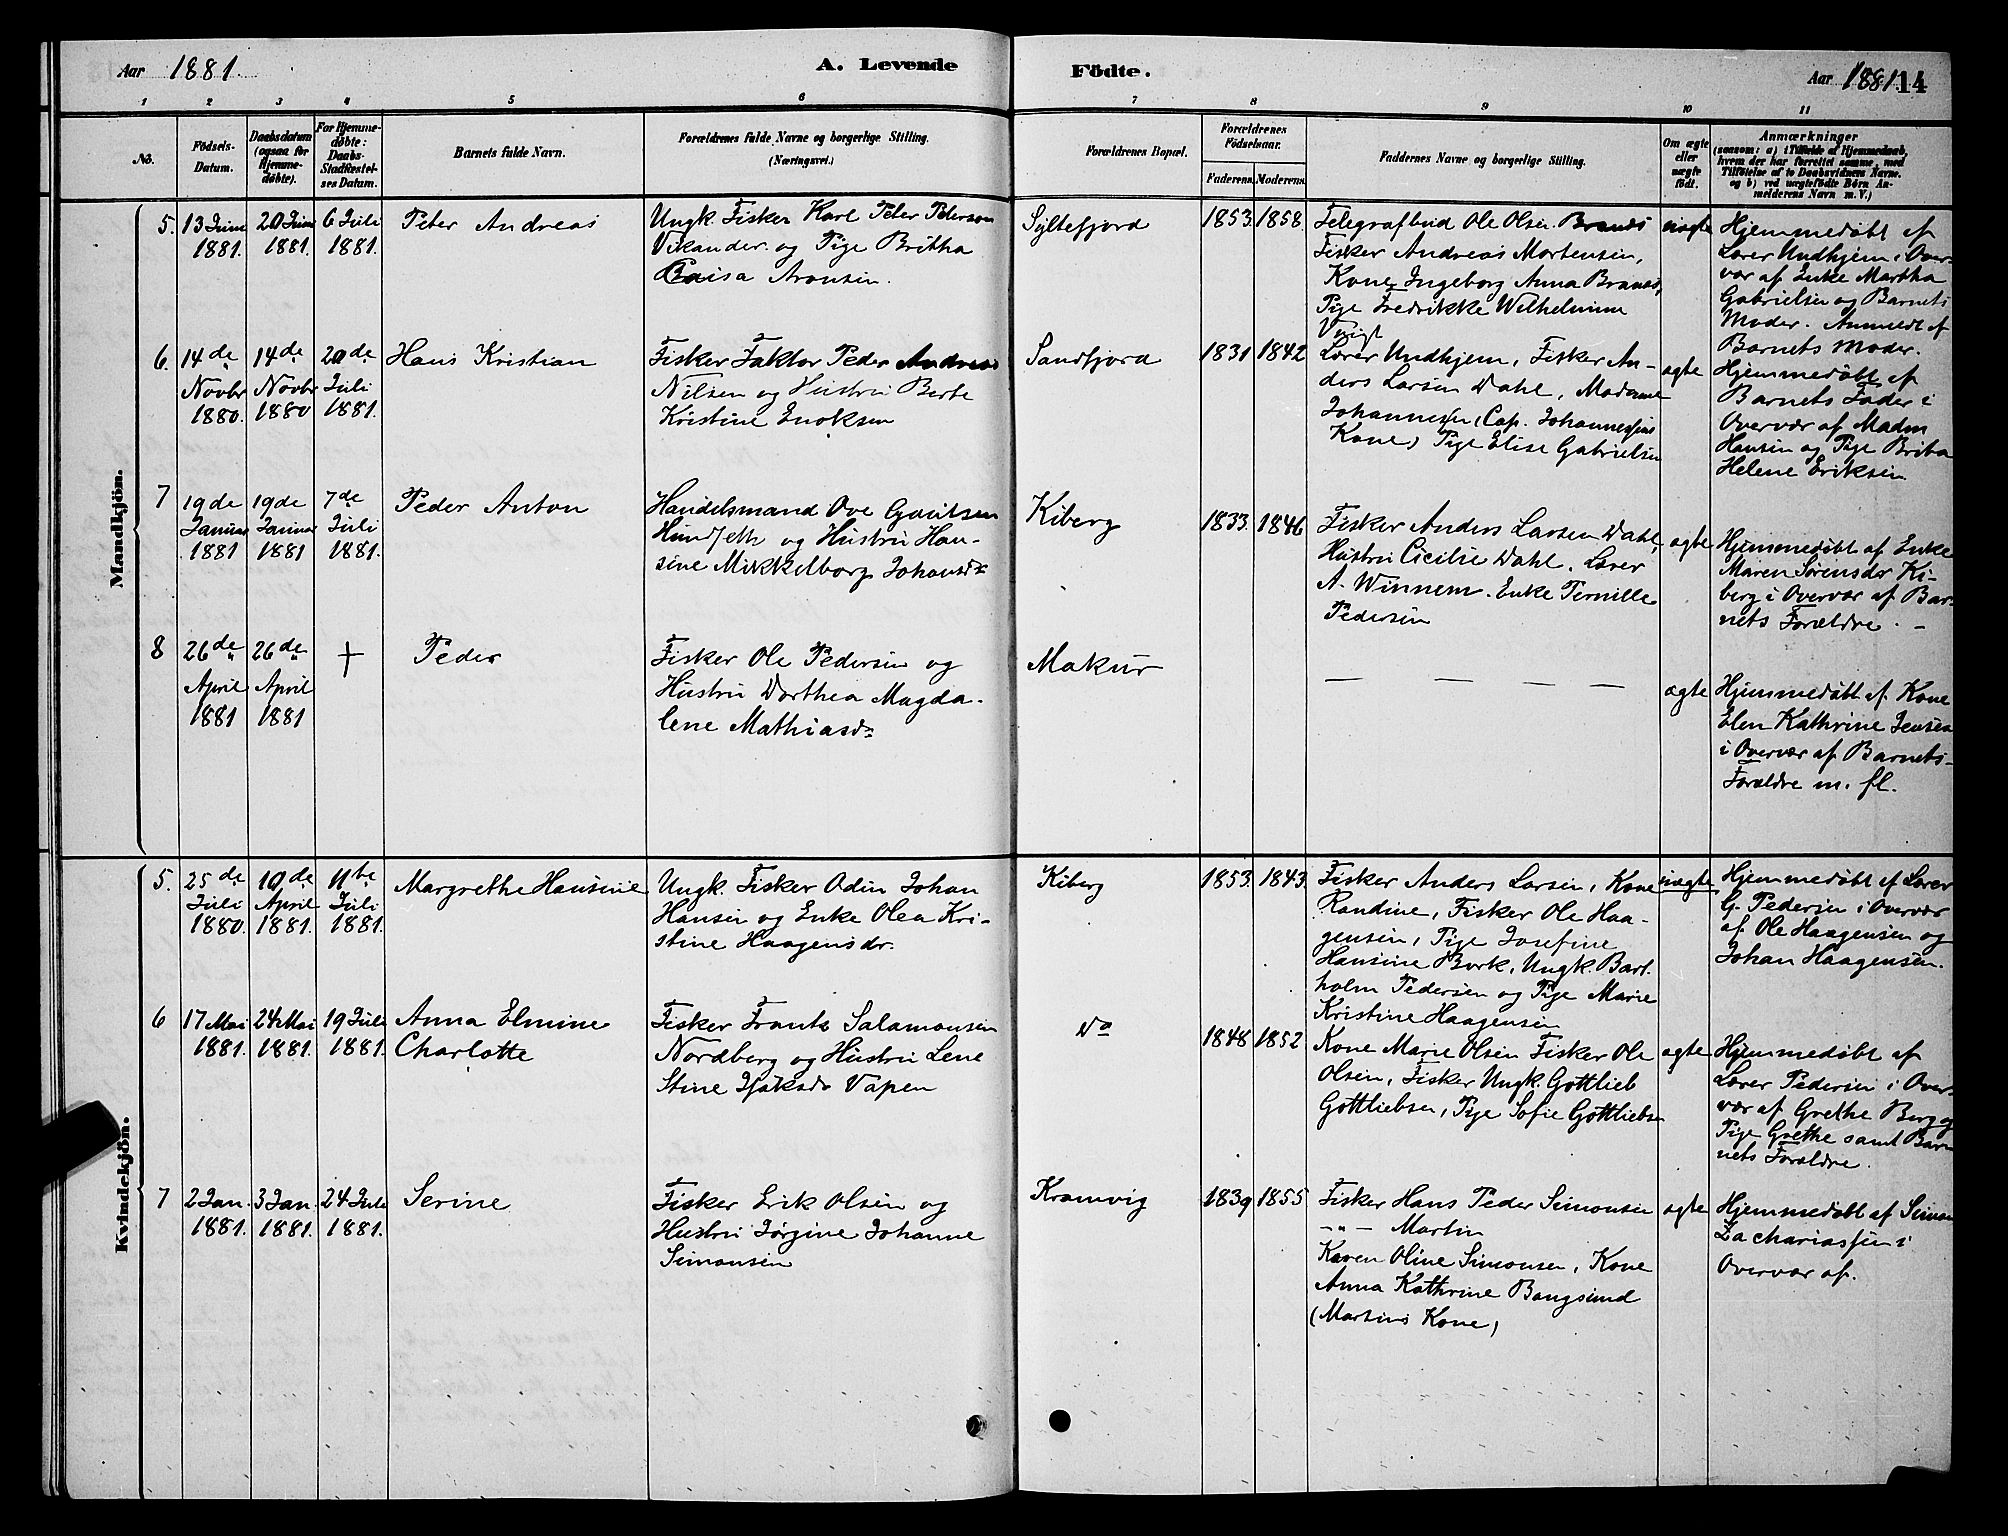 Aar 1881. A. Levende Födte. Aar 1881. 14
1 2 3 4 5 6 7 8 9 10 11
No. Födsels-Datum. Daabsdatum (ogsaa for Hjemme-döbte). For Hjemme-döbte: Daabs-Stadfæstel-ses Datum. Barnets fulde Navn. Forældrenes fulde Navne og borgerlige Stilling. (Næringsvei.) Forældrenes Bopæl. Forældrenes Födselsaar. Faderens. Moderens. Faddernes Navne og borgerlige Stilling. Om ægte eller uægte födt. Anmærkninger (saasom: a) i Tilfælde af Hjemmedaab, hvem der har forrettet samme, med Tilföielse af to Daabsvidners Navne, og b) ved uægtefödte Börn An-melderens Navn m. V.)
Mandkjön.
5. 13 Juni 1881. 20 Juni 1881. 6 Juli 1881. Peter Andreas
Ungk. Fisker Karl Peter Peterson
Vikander. og Pige Britha
Caisa Aronsen.
Syltefjord 1853. 1858.
Telegrafbud Ole Olsen Brands
Fisker Andreas Mortensen,
Kone Ingeborg Anna Brands,
Pige Fredrikke Wilhelmine
Voigt
uægte
Hjemmedøbt af
Lærer Undhjem i Over-
vær af Enke Martha
Gabrielsen og Barnets
Moder. Anmeldt af
Barnets Moder.
6. 14de Novbr 1880. 14de Novbr 1880 20de Juli 1881. Hans Kristian
Fisker Faktor Peder Andreas
Nilsen og Hustru Berte
Kristine Enoksen
Sandfjord 1831 1842
Lærer Undhjem, Fisker An-
ders Larsen Dahl, Madame
Johannessen (Cap. Johannessens
Kone) Pige Elise Gabrielsen
ægte
Hjemmedøbt af
Barnets Fader i
Overvær af Madm
Hansen og Pige Brita
Helene Eriksen
7 19de Januar 1881 19de Januar 1881 7de Juli 1881. Peder Anton
Handelsmand Ove
og Hustru Han-
sine Mikkelborg Johansdr
Kiberg 1833. 1846
Fisker Anders Larsen Dahl,
Hustru Cicilie Dahl. Lærer
A. Winnem. Enke Pernille
Pedersen
ægte
Hjemmedøbt af Enke
Maren Sørensdr Ki-
berg i Overvær af Bar-
nets Forældre. –
8 26de April 1881 26de April 1881 † Peder
Fisker Ole Pedersen og
Hustru Dorthea Magda-
lene Mathiasdr
Makur
— — — — —
ægte
Hjemmedøbt af Kone
Elen Kathrine Jensen
i Overvær af Barnets
Forældre m. fl.
Kvindekjön.
5. 25de Juli 1880. 10de April 1881. 11te Juli 1881. Margrethe Hansine
Ungk. Fisker Odin Johan
Hansen og Enke Olea Kri-
stine Haagensdr.
Kiberg 1853. 1843.
Fisker Anders Larsen, Kone
Randine, Fisker Ole Haa-
gensen, Pige Josefine
Hansine Bork, Ungk. Bart-
holm Pedersen og Pige Marie
Kristine Haagensen
uægte
Hjemmedøbt af Lærer
G. Pedersen i Overvær
af Ole Haagensen og
Johan Haagensen.
6 17 Mai 1881. 24 Mai 1881. 19 Juli 1881. Anna Elmine
Charlotte
Fisker Frants Salamonsen
Nordberg og Hustru Lene
Stine Isaksdr Vapen
Do 1848 1852
Kone Marie Olsen Fisker Ole
Olsen, Fisker Ungk. Gottlieb
Gottliebsen, Pige Sofie Gottliebsen
ægte
Hjemmedøbt af
Lærer Pedersen i Over-
vær af Grethe Berg og
Pige Grethe samt Bar-
nets Forældre.
7 2 Jan. 1881. 3 Jan. 1881. 24 Juli 1881. Serine
Fisker Erik Olsen og
Hustru Jørgine Johanne
Simonsen
Kramvig 1839 1855
Fisker Hans Peder Simonsen
–"– Martin
Karen Oline Simonsen, Kone
Anna Kathrine Bangsund
(Martins Kone)
ægte
Hjemmedøbt af Simon
Zachariassen i
Overvær af.